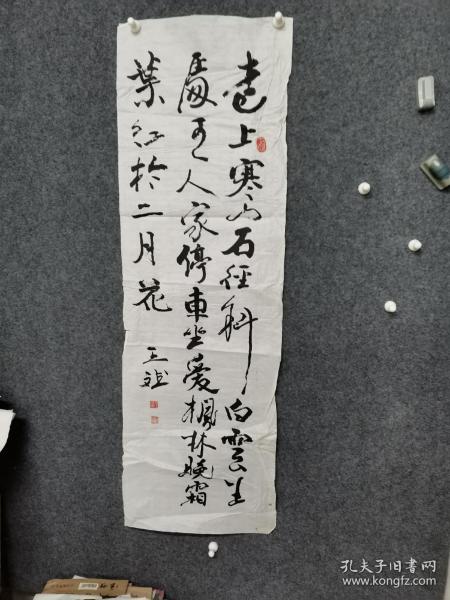 遠上寒山石徑斜白雲生
處有人家停車坐愛楓林晚霜
葉紅於二月花
王斌
孔夫子旧书网
www.kongfz.com